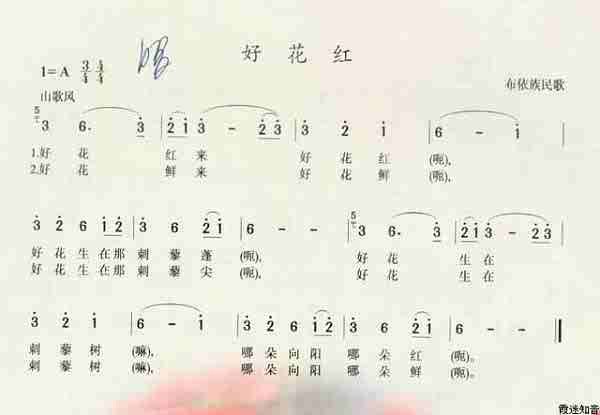 好花红
1=A 3/4 4/4
布依族民歌
山歌风
5 3 6· 3 2 1 3 - 2 3 3 2 1 6 - 1
1.好 花 红 来 好 花 红 (呃),
2.好 花 鲜 来 好 花 鲜 (呃),
3 2 6 1 2 3 3 6 2 1 6 - - 5 3 6· 3 2 1 3 - 2 3
好 花 生 在 那 刺 藜 蓬 (呃), 好 花 生 在
好 花 生 在 那 刺 藜 尖 (呃), 好 花 生 在
3 2 1 6 - 1 3 2 6 1 2 3 3 6 2 1 6 - -
刺 藜 树 (嘛), 哪 朵 向 阳 哪 朵 红 (呃)。
刺 藜 树 (嘛), 哪 朵 向 阳 哪 朵 鲜 (呃)。
霞迷知音